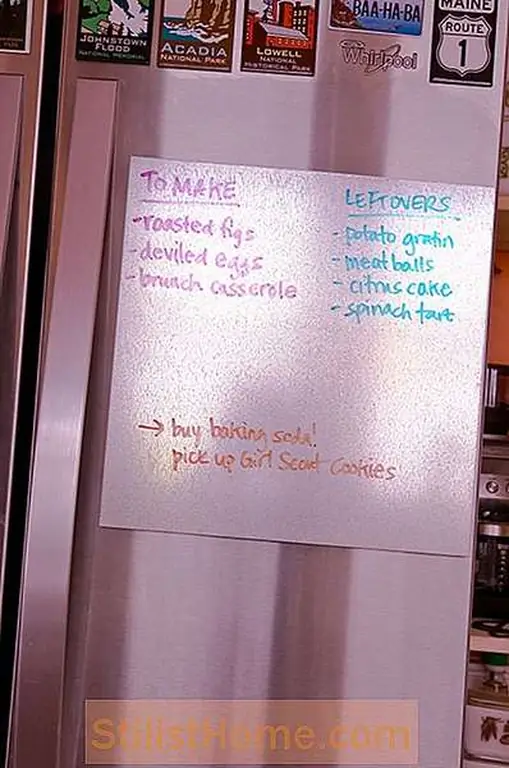 JOHNSTOWN
FLOOD
NATIONAL MEMORIAL
ACADIA
NATIONAL PARK
LOWELL
NATIONAL
HISTORICAL PARK
BAA-HA-BA
Whirlpool
MAINE
ROUTE
1
TO MAKE
-roasted figs
-deviled eggs
-brunch casserole
LEFTOVERS
-potato gratin
-meatballs
-citrus cake
-spinach tart
→ buy baking soda!
pick up Girl Scout Cookies
StilistHome.com